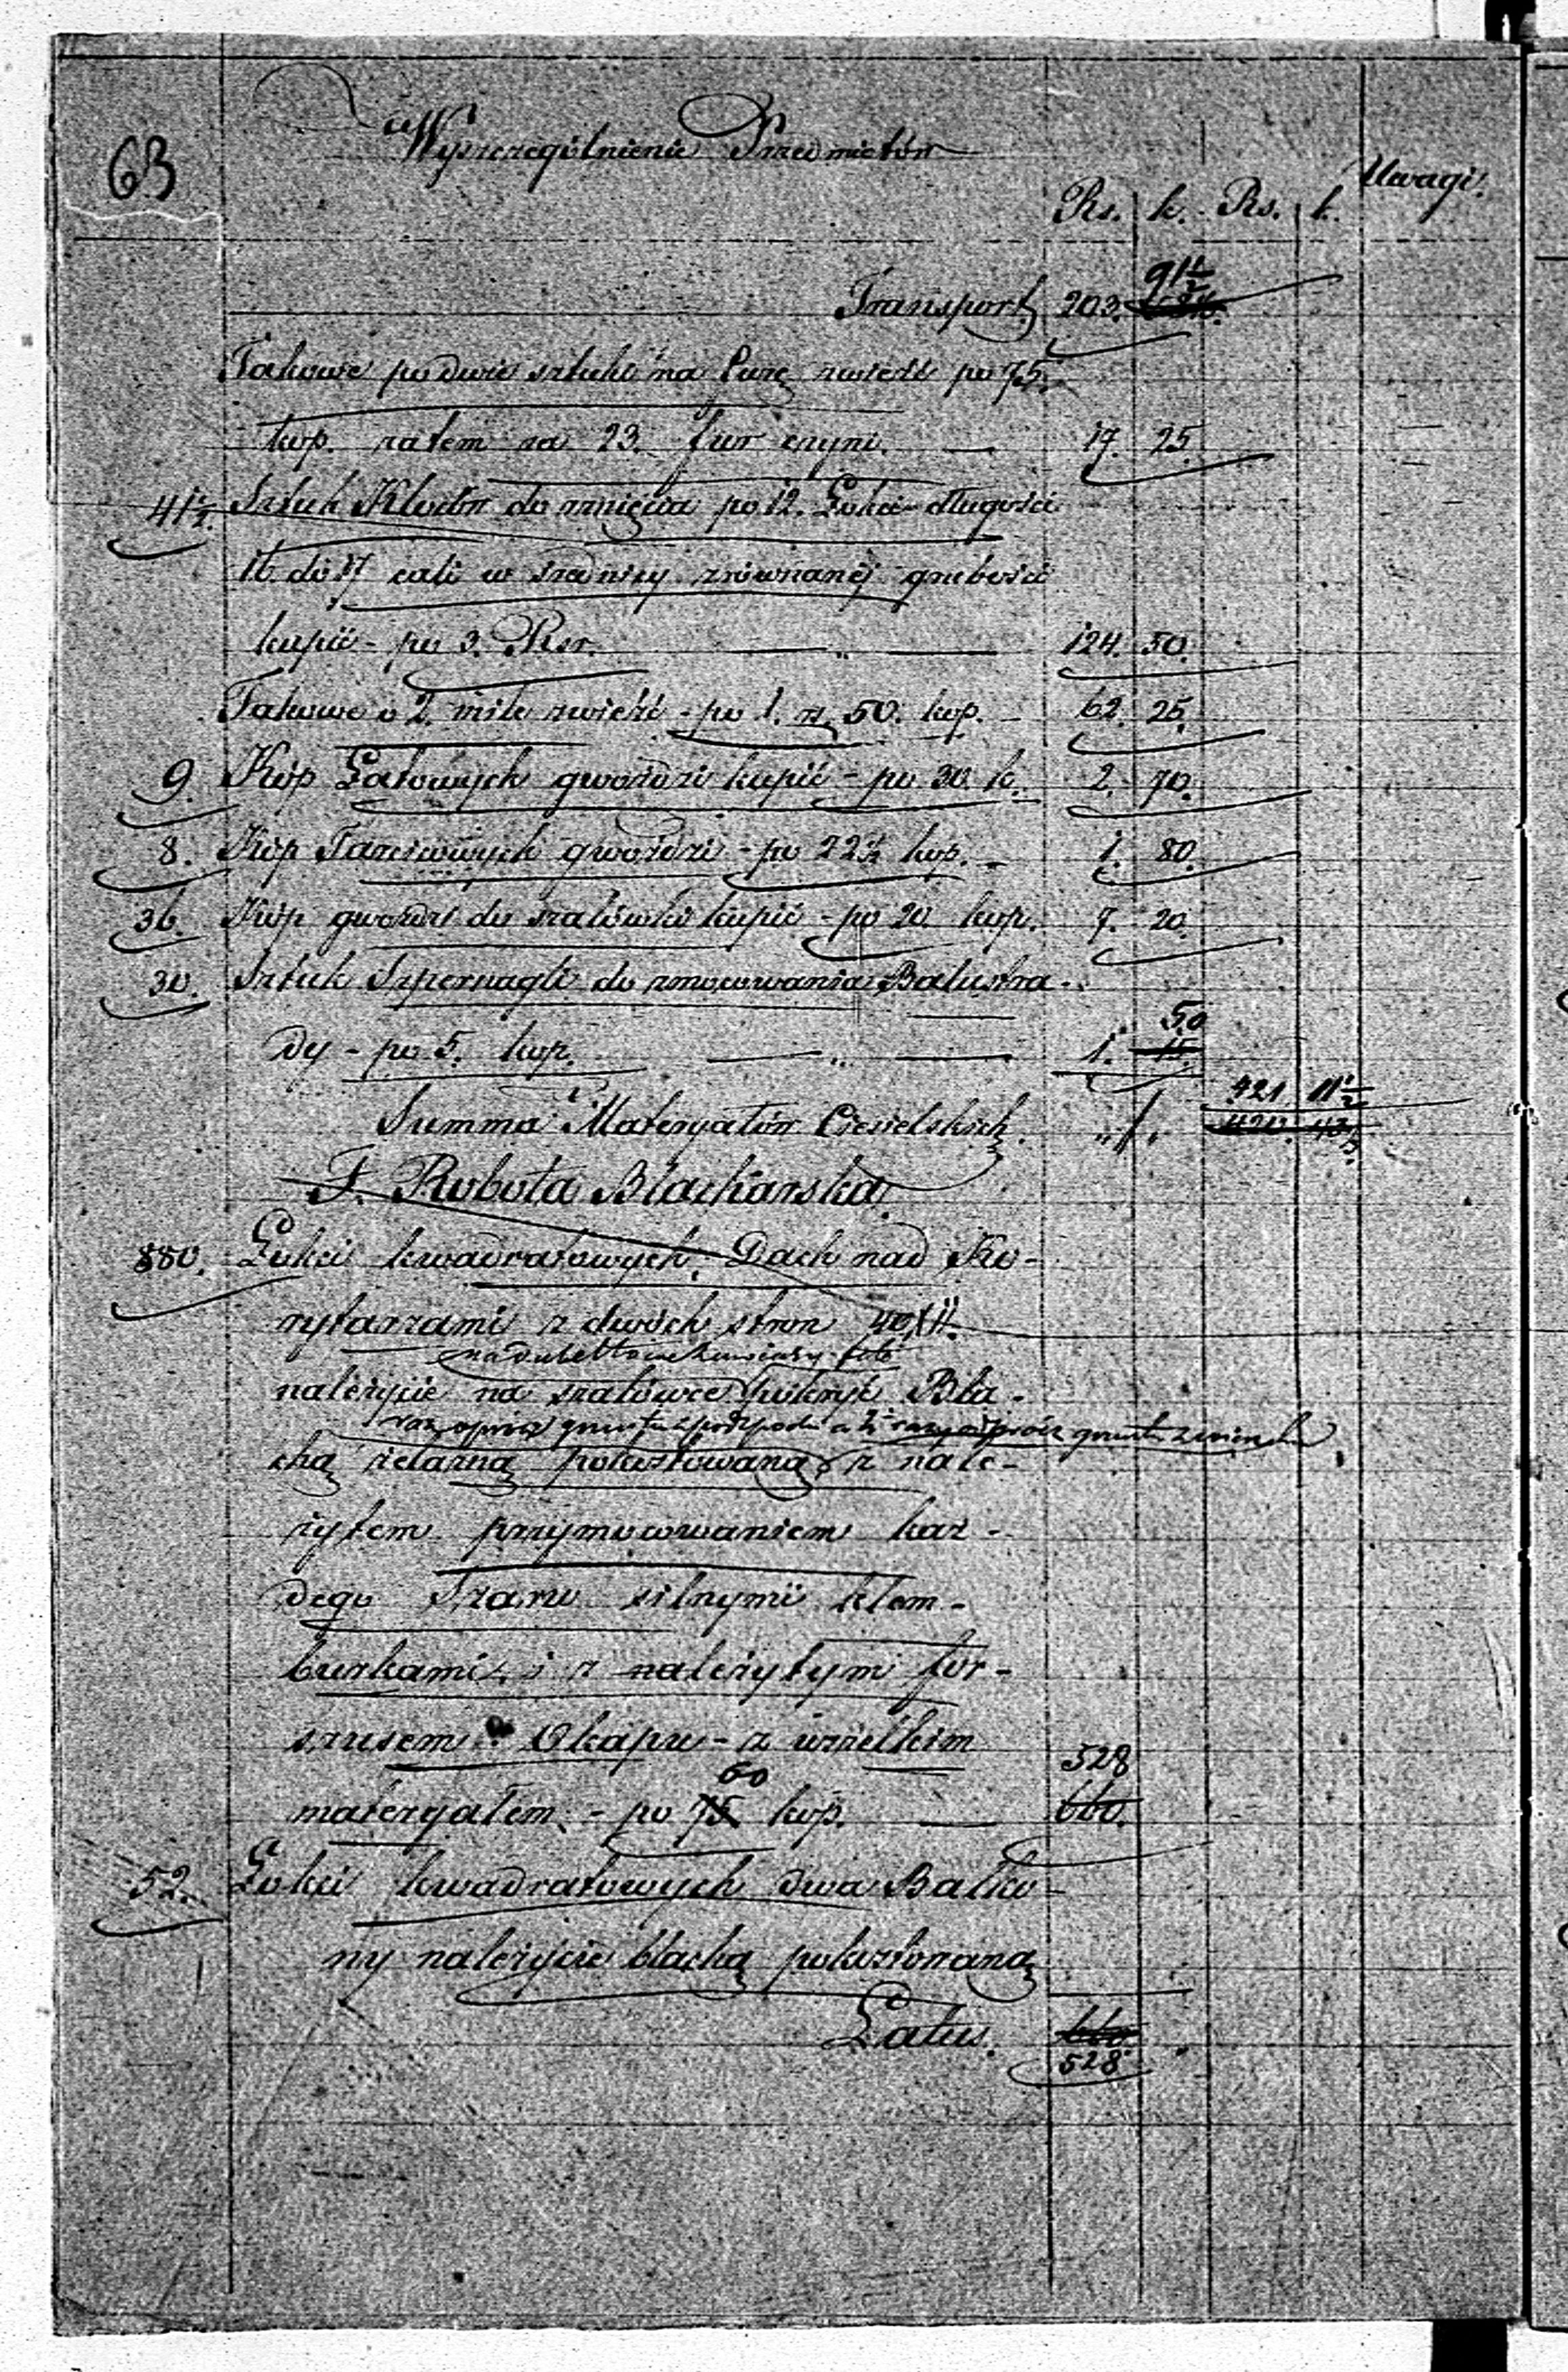 63
Wyszczególnienie Przedmiotów
Rs. k. Rs. k. Uwagi.
91½
Transport 203.
Takowe po dwie sztuki na furę zwieźć po 75.
kop. zatem za 23. fur czyni. — 17. 25.
41½. Sztuk Kloców do rznięcia po 12. Łokci długości
16 do 17 cali w średnicy zrównanéj grubości
kupić - po 3. Rsr. — „ — 124. 50.
Takowe o 2. mile zwieźć - po 1. r. 50. kop. — 62. 25.
9. Kóp Łatowych gwoździ kupić - po 30. k. 2. 70.
8. Kóp Tarcicowych gwoździ - po 22½ kop. — 1. 80.
36. Kóp gwoździ do szalówki kupić - po 20. kop. 7. 20.
30. Sztuk Szpernagli do zmocowania Balustra-
50
dy - po 5. kop. — „ — 1. 15.
421 11½
Summa Materyałów Ciesielskich. „ / „
F. Robota Blacharska.
880. Łokci kwadratowych, Dach nad Ko-
rytarzami z dwóch stron 40/11.
należycie na szalówce pokryć Bla-
chą żelazną pokostowaną z nale-
żytem przymocowaniem każ-
dego Szaru silnymi klam-
burkami, i z należytym for-
szusem Okapu - z wszelkim
60 528
materyałem - po 75 kop. — 660.
52. Łokci kwadratowych dwa Balko-
ny należycie blachą pokostowaną
Latus. 660
528